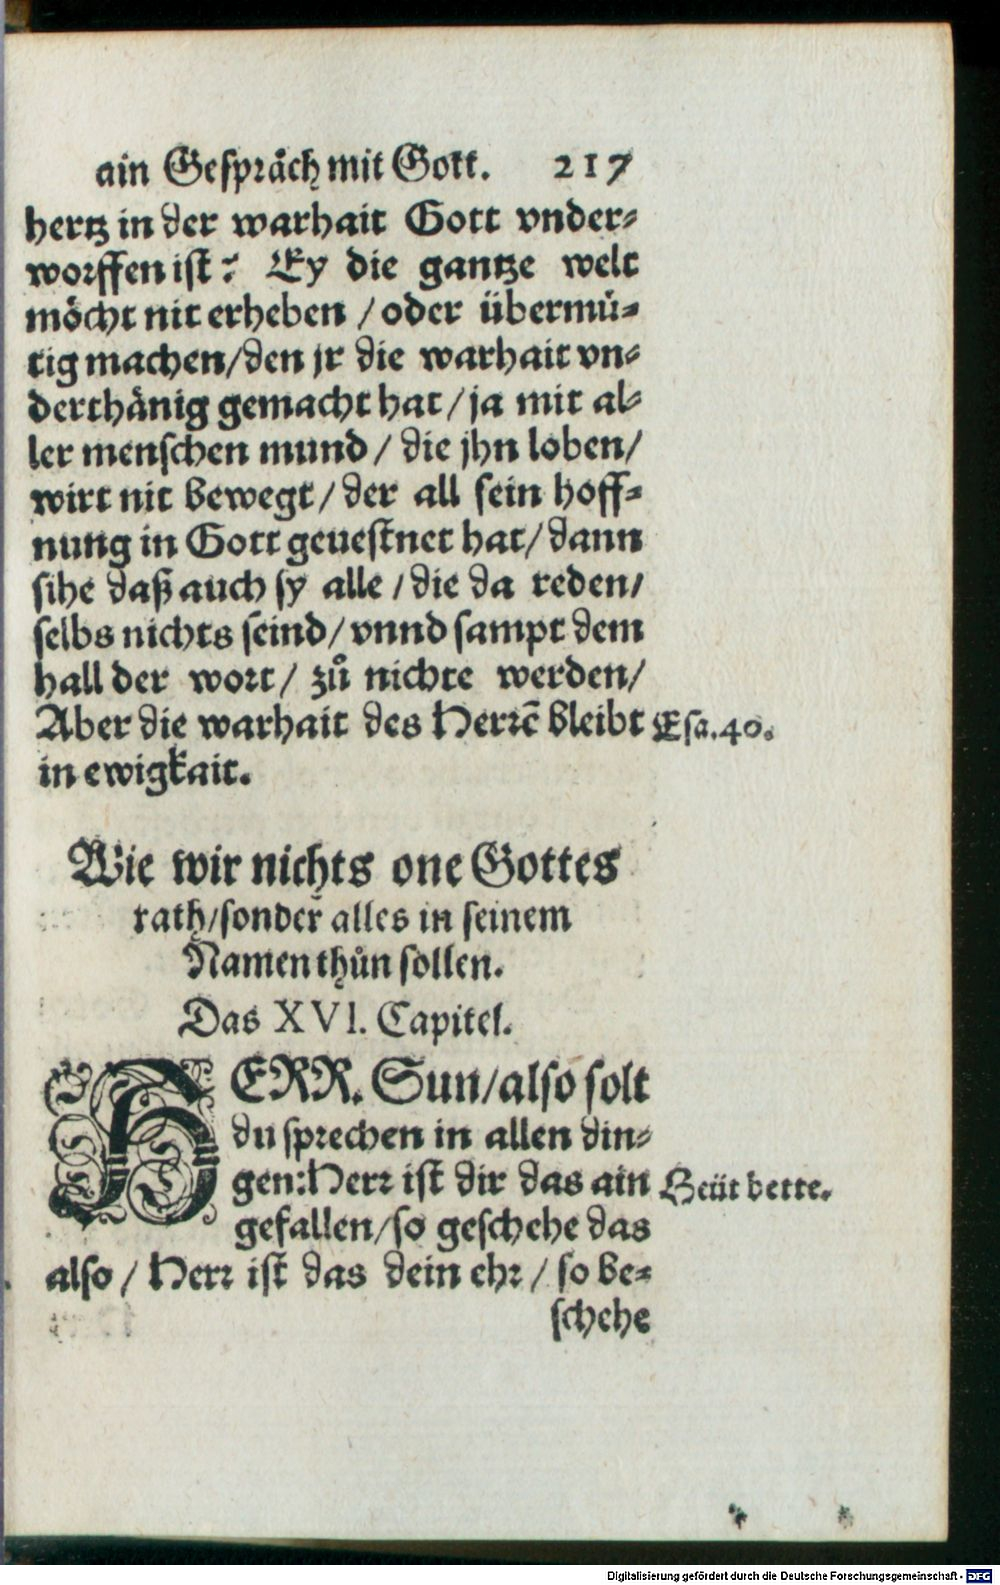 ain Gespräch mit Gott. 217
hertz in der warhait Gott vnder-
worffen ist? Ey die gantze welt
möcht nit erheben / oder übermü-
tig machen/den jr die warhait vn-
derthänig gemacht hat / ja mit al-
ler menschen mund / die jhn loben/
wirt nit bewegt / der all sein hoff-
nung in Gott geuestnet hat / dann
sihe daß auch sy alle / die da reden/
selbs nichts seind / vnnd sampt dem
hall der wort / zů nichte werden/
Aber die warhait des Herrē bleibt Esa.40.
in ewigkait.
Wie wir nichts one Gottes
rath/sonder alles in seinem
Namen thůn sollen.
Das XVI. Capitel.
HERR. Sun/also solt
du sprechen in allen din-
gen: Herr ist dir das ain
gefallen/so geschehe das
also / Herr ist das dein ehr / so be-
schehe
Digitalisierung gefördert durch die Deutsche Forschungsgemeinschaft - DFG